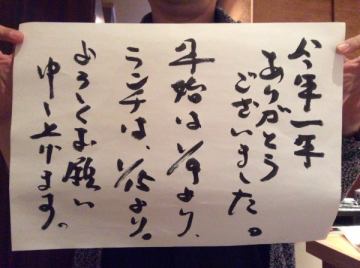 今年一年
ありがとう
ございました。
年始は1/9より、
ランチは、1/15より。
よろしくお願い
申し上げます。